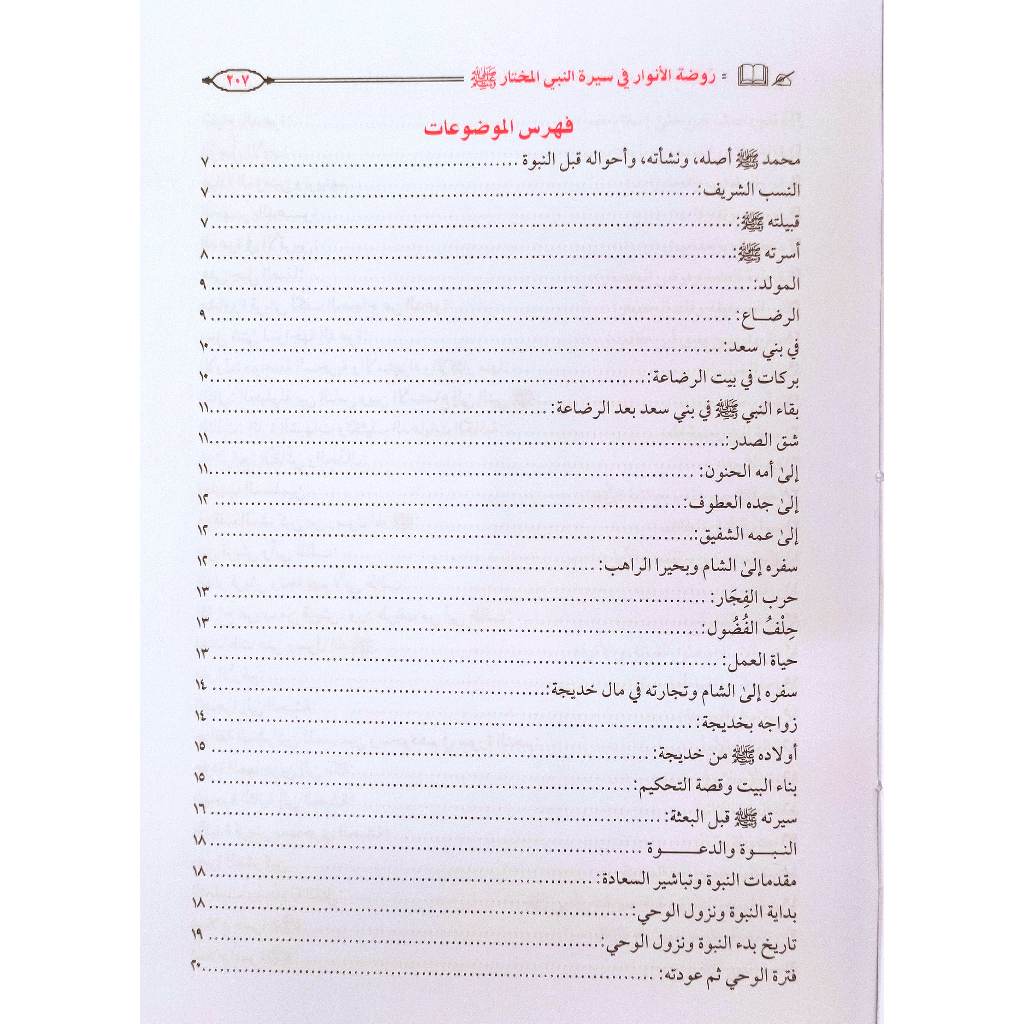 = روضة الأنوار في سيرة النبي المختار ﷺ ٢٠٧
فهرس الموضوعات
محمد ﷺ أصله، ونشأته، وأحواله قبل النبوة ........ ٧
النسب الشريف: ........ ٧
قبيلته ﷺ: ........ ٧
أسرته ﷺ: ........ ٨
المولد: ........ ٩
الرضـــاع: ........ ٩
في بني سعد: ........ ١٠
بركات في بيت الرضاعة: ........ ١٠
بقاء النبي ﷺ في بني سعد بعد الرضاعة: ........ ١١
شق الصدر: ........ ١١
إلىٰ أمه الحنون: ........ ١١
إلىٰ جده العطوف: ........ ١٢
إلىٰ عمه الشفيق: ........ ١٢
سفره إلىٰ الشام وبحيرا الراهب: ........ ١٢
حرب الفِجَار: ........ ١٣
حِلْفُ الفُضُول: ........ ١٣
حياة العمل: ........ ١٣
سفره إلىٰ الشام وتجارته في مال خديجة: ........ ١٤
زواجه بخديجة: ........ ١٤
أولاده ﷺ من خديجة: ........ ١٥
بناء البيت وقصة التحكيم: ........ ١٥
سيرته ﷺ قبل البعثة: ........ ١٦
النـبـــوة والدعــــــوة ........ ١٨
مقدمات النبوة وتباشير السعادة: ........ ١٨
بداية النبوة ونزول الوحي: ........ ١٨
تاريخ بدء النبوة ونزول الوحي: ........ ١٩
فترة الوحي ثم عودته: ........ ٢٠